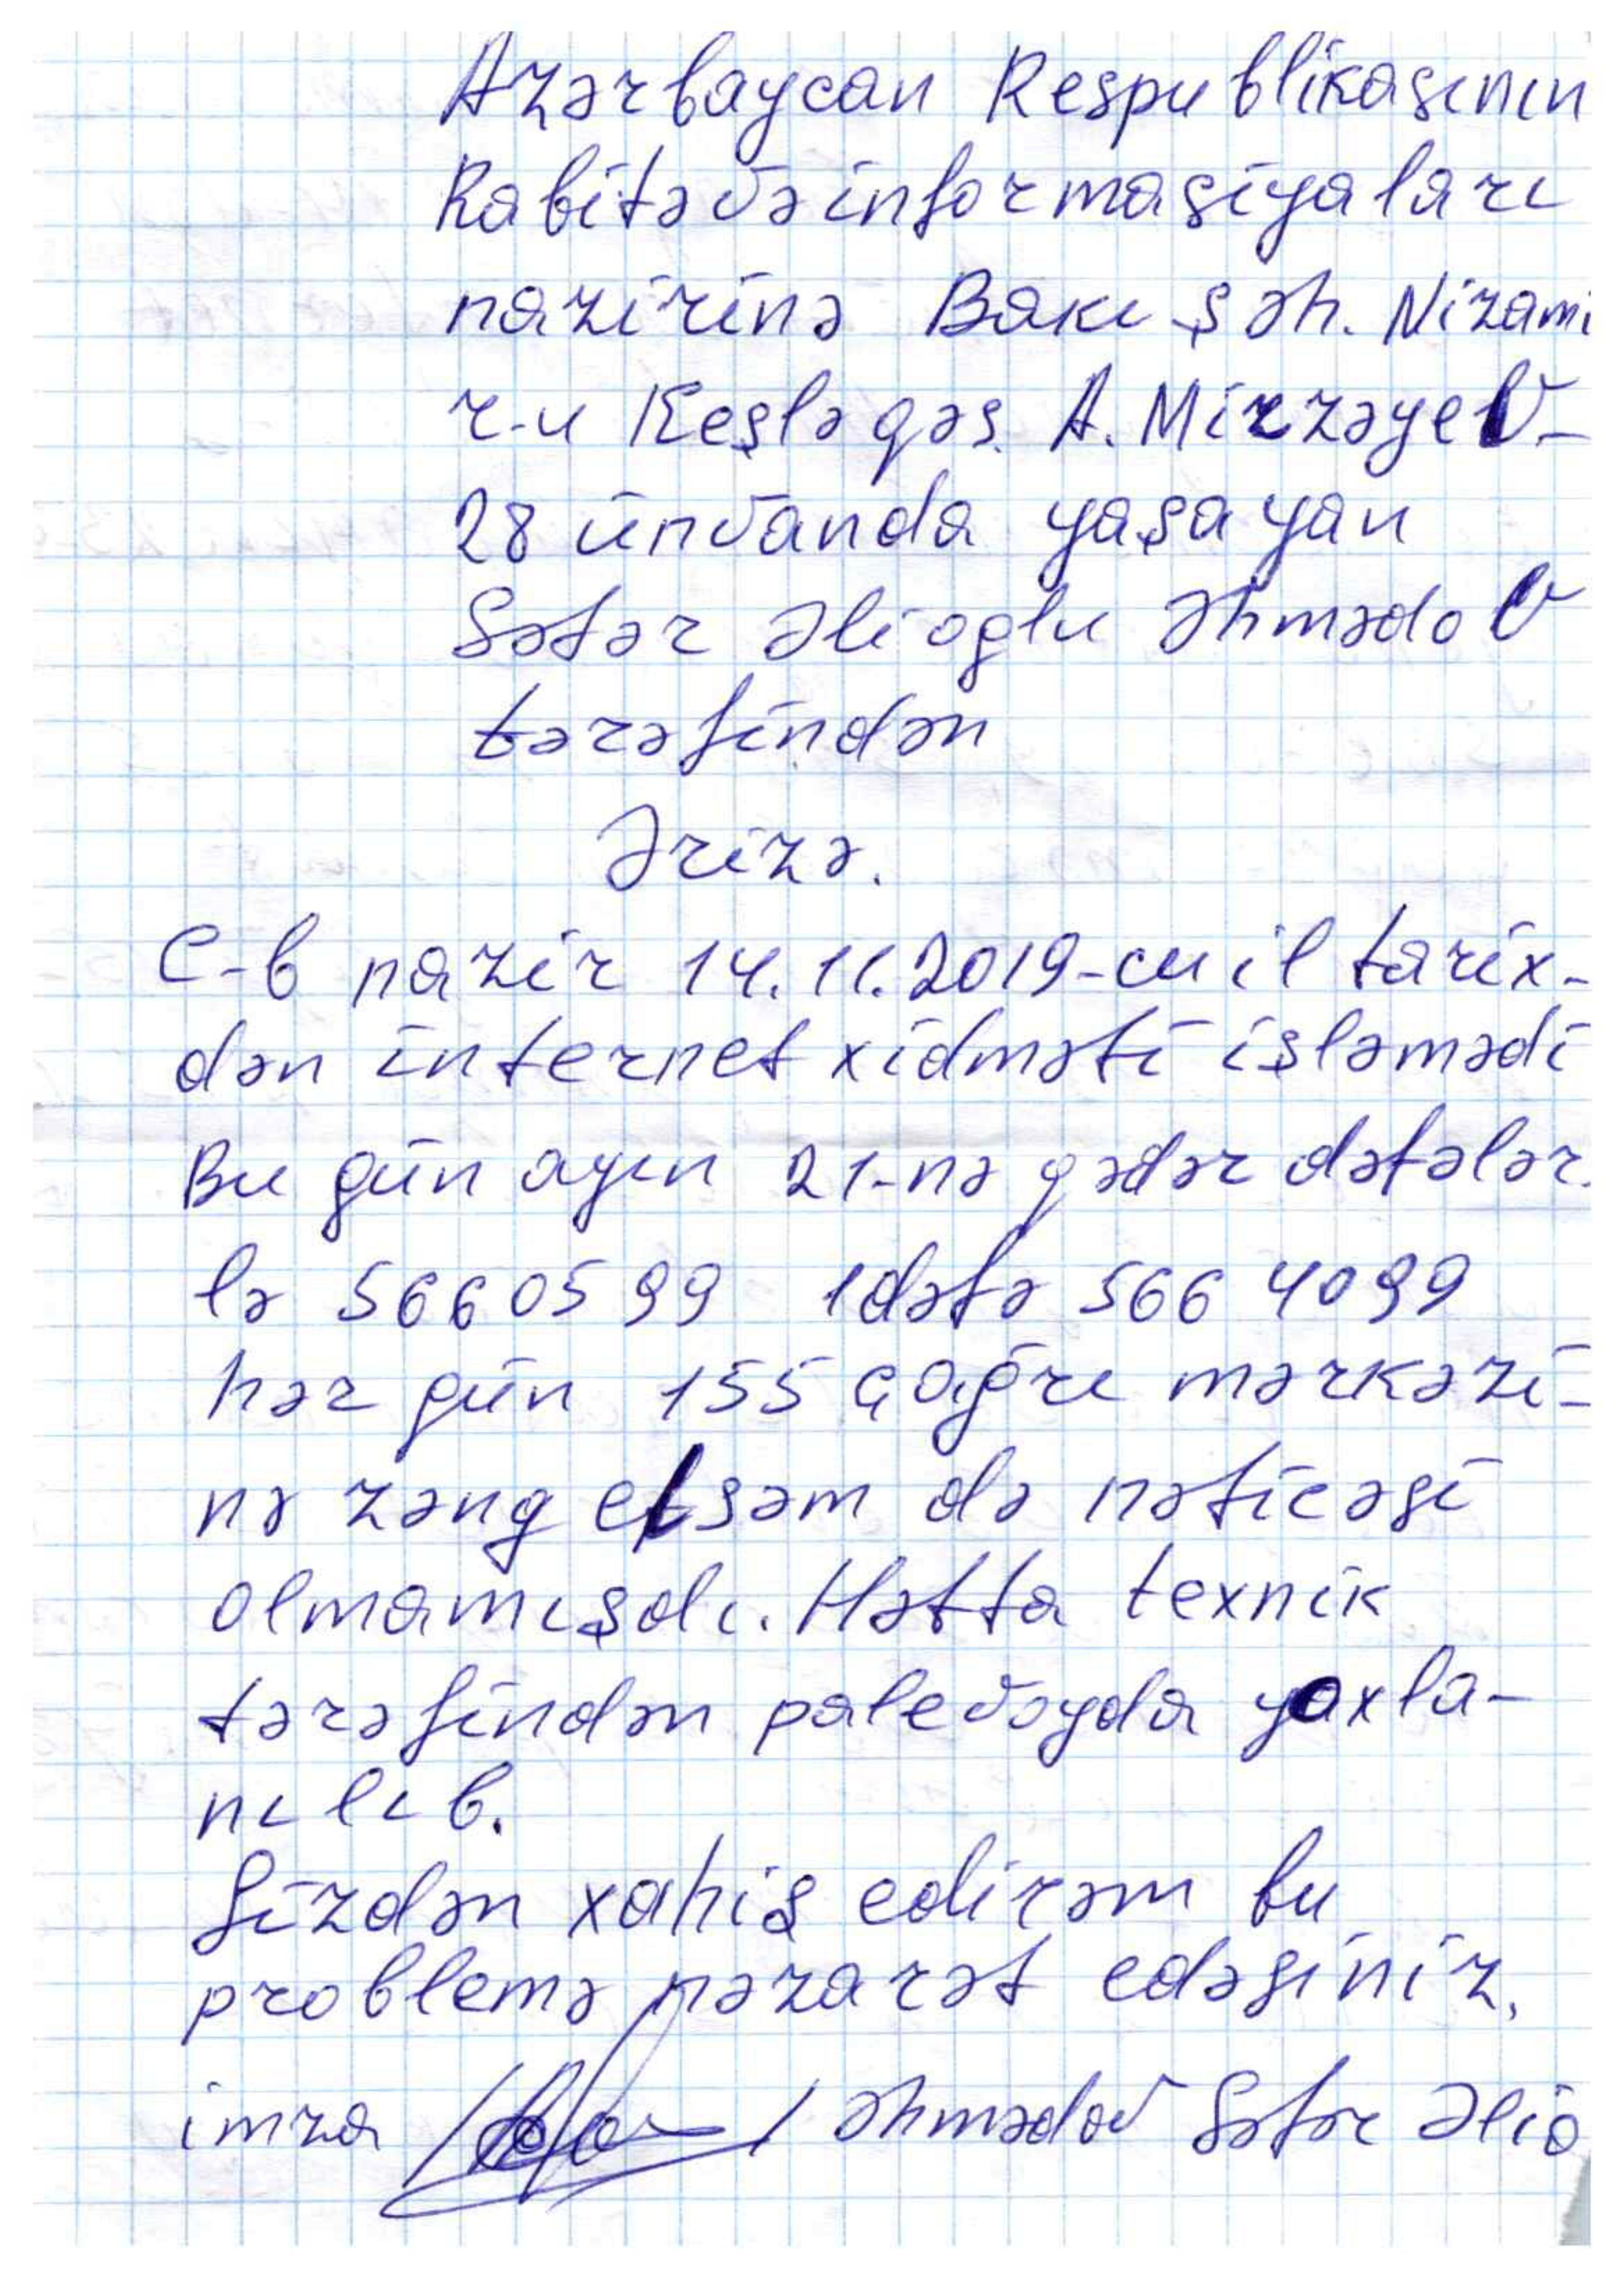 Azərbaycan Respublikasının
Rabitə və informasiyaları
nazirinə Bakı şəh. Nizami
r-u Keşlə qəs. A. Mirzəyev-
28 ünvanda yaşayan
Səfər Əli oglu Əhmədov
tərəfindən
Ərizə.
C-b nazir 14.11.2019-cu il tarix-
dən internet xidməti işləmədi
Bu gün ayın 21-nə qədər dəfələr
lə 5660599 1 dəfə 566 4099
hər gün 155 çağrı mərkəzi-
nə zəng etsəm də nəticəsi
olmamışdı. Hətta texnik
tərəfindən palevoyda yoxla-
nılıb.
Sizdən xahiş edirəm bu
problemə nəzarət edəsiniz.
imza Əhmədov Səfər Əli o